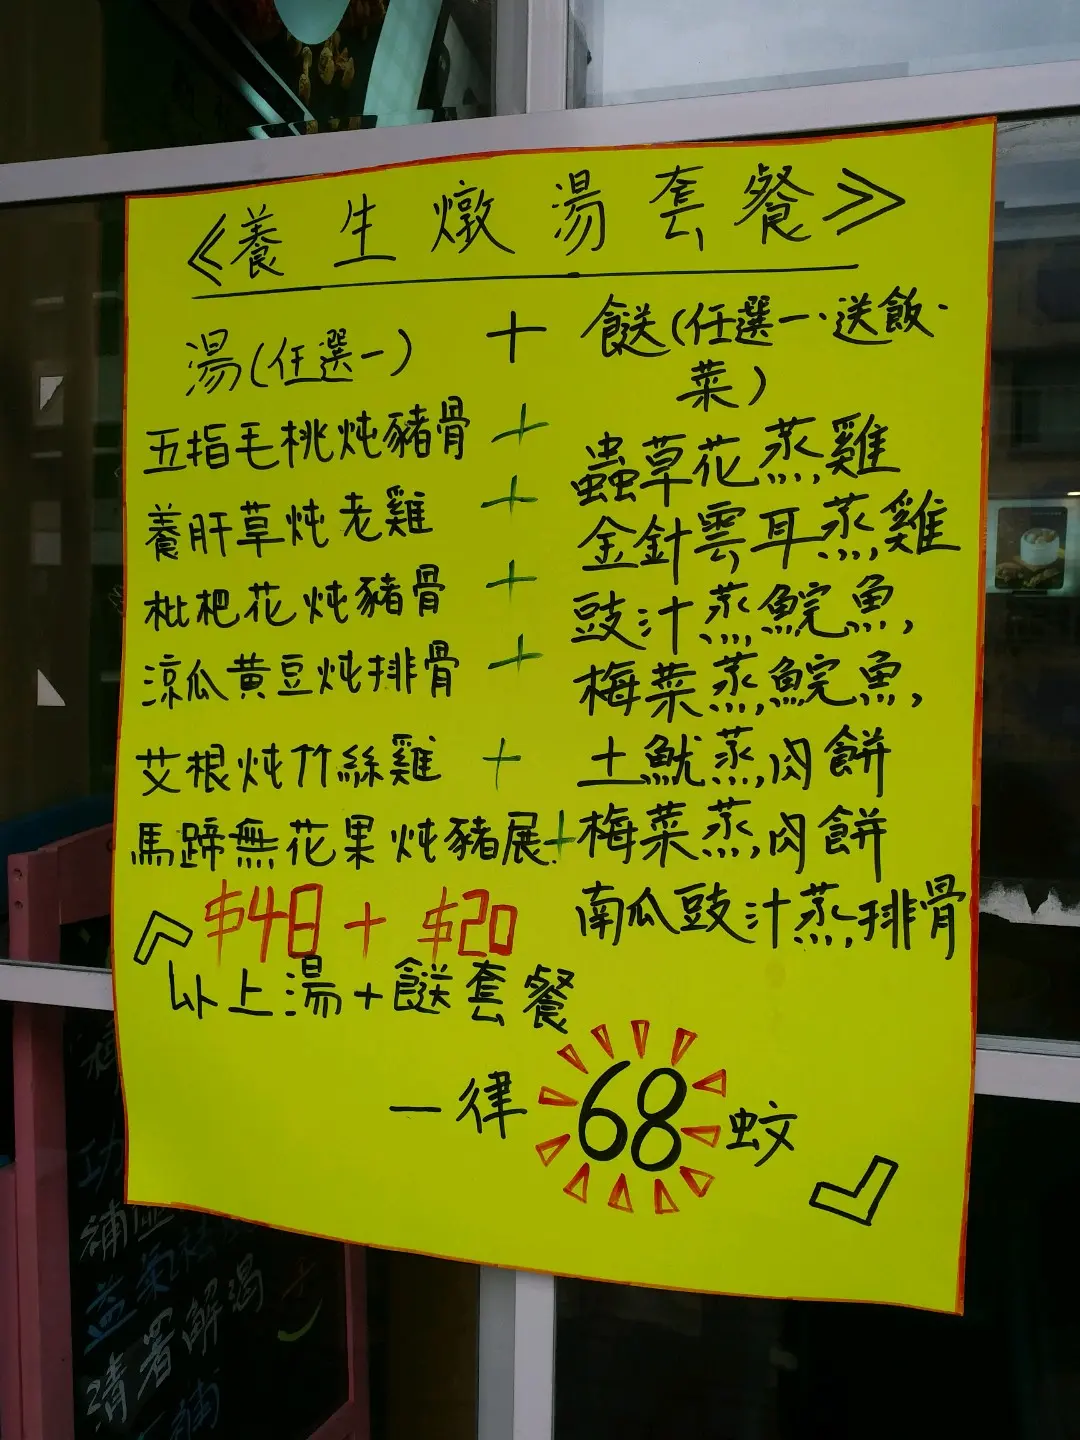 《養生燉湯套餐》
湯(任選一) + 餸(任選一·送飯·菜)
五指毛桃炖豬骨 + 蟲草花蒸雞
養肝草炖老雞 + 金針雲耳蒸雞
枇杷花炖豬骨 + 豉汁蒸鯇魚,
涼瓜黄豆炖排骨 + 梅菜蒸鯇魚,
艾根炖竹絲雞 + 土魷蒸肉餅
馬蹄無花果炖豬展+梅菜蒸肉餅
南瓜豉汁蒸排骨
$48 + $20
以上湯+餸套餐
一律68蚊
補虛
益氣
清署解渴